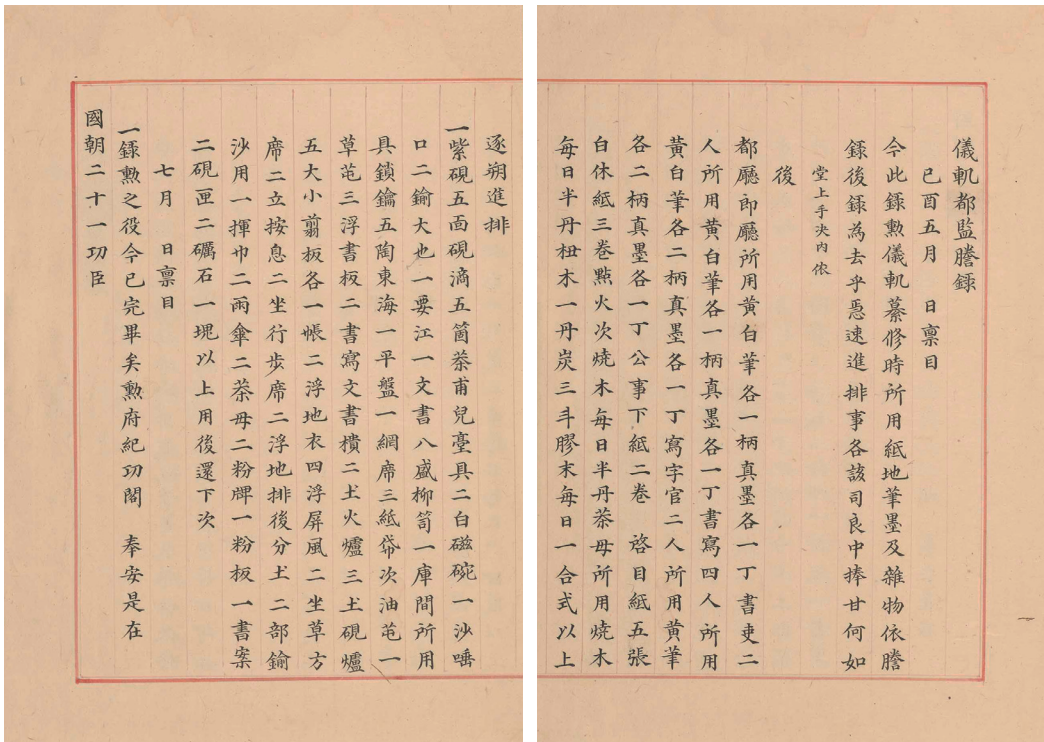 儀軌都監謄錄
己酉五月 日稟目
今此錄勲儀軌纂修時所用紙地筆墨及雜物依謄
錄後錄為去乎急速進排事各該司良中捧甘何如
堂上手决內依
後
都廳郎廳所用黄白筆各一柄真墨各一丁書吏二
人所用黄白筆各一柄真墨各一丁書寫四人所用
黄白筆各二柄真墨各一丁寫字官二人所用黄筆
各二柄真墨各一丁公事下紙二卷 啓目紙五張
白休紙三卷點火次燒木每日半丹茶母所用燒木
每日半丹杻木一丹炭三斗膠末每日一合式以上
逐朔進排
一紫硯五面硯滴五箇茶甫兒臺具二白磁碗一沙唾
口二鍮大也一要江一文書八盛柳笥一庫間所用
具鎖鑰五陶東海一平盤一網席三紙帒次油芚一
草芚三浮書板二書寫文書樻二土火爐三土硯爐
五大小剪板各一帳二浮地衣四浮屏風二坐草方
席二立按息二坐行步席二浮地排後分土二部鍮
沙用一揮巾二雨傘二茶母二粉牌一粉板一書案
二硯匣二礪石一塊以上用後還下次
七月 日稟目
一錄勲之役今已完畢矣勲府紀功閣 奉安是在
國朝二十一功臣